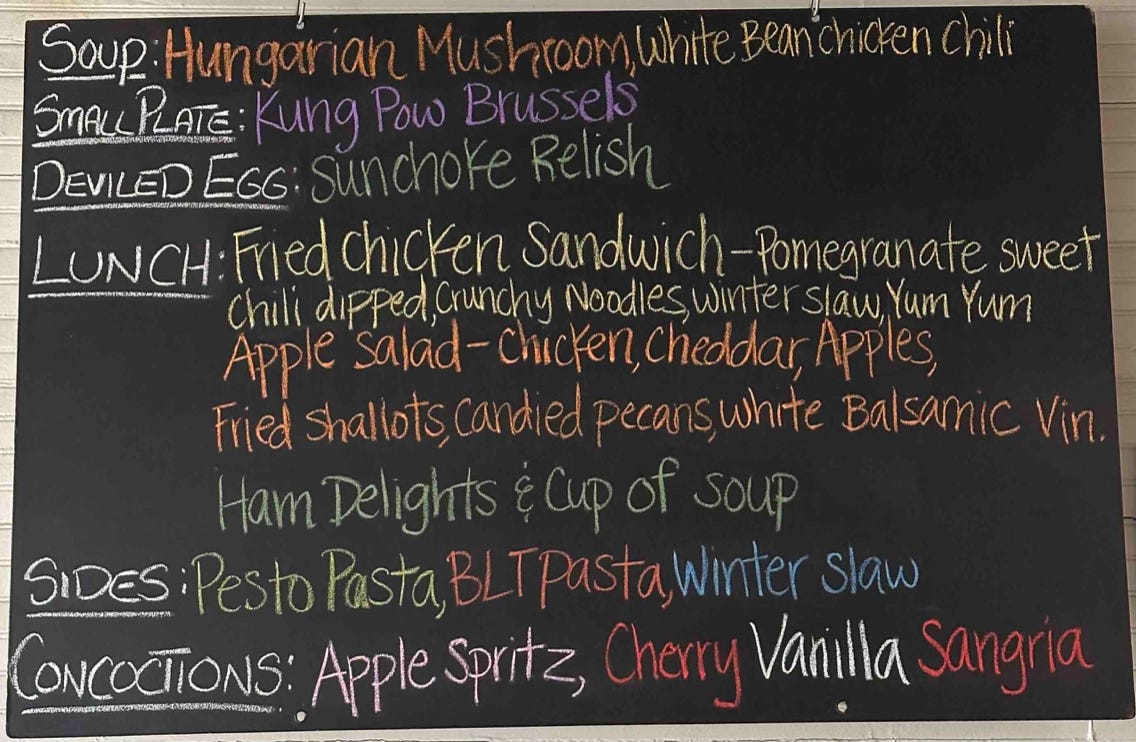 Soup: Hungarian Mushroom, White Bean Chicken Chili
Small Plate: Kung Pow Brussels
Deviled Egg: Sunchoke Relish
Lunch: Fried Chicken Sandwich - Pomegranate sweet
chili dipped, Crunchy Noodles, winter slaw, Yum Yum
Apple Salad - Chicken, Cheddar, Apples,
Fried Shallots, Candied pecans, White Balsamic Vin.
Ham Delights & Cup of soup
Sides: Pesto Pasta, BLT pasta, Winter slaw
Concoctions: Apple Spritz, Cherry Vanilla Sangria